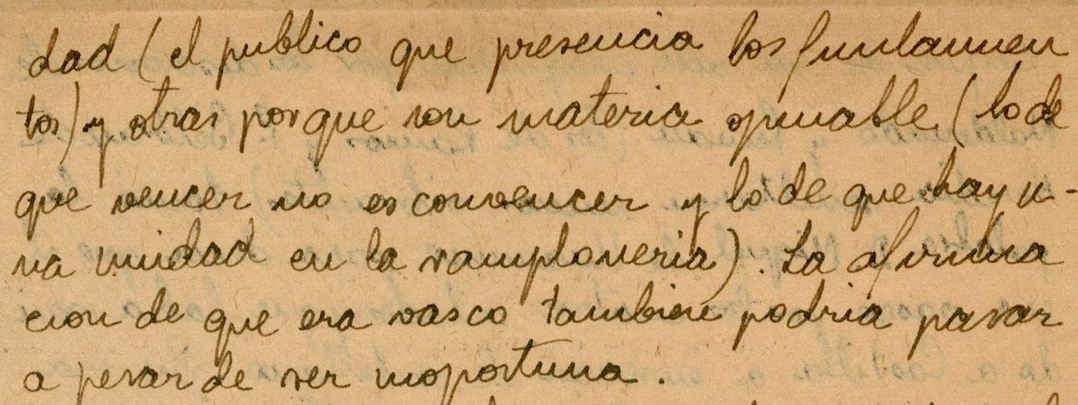 dad (el publico que presencia los fusilamien
tos) y otras porque son materia opinable (lo de
que vencer no es convencer y lo de que hay u-
na unidad en la ramploneria). La afirma
cion de que era vasco tambien podria pasar
a pesar de ser inoportuna.